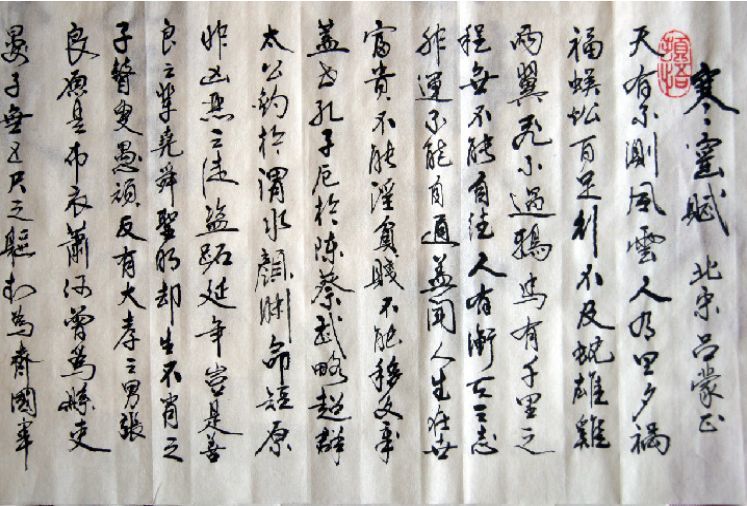 寒窯賦 北宋吕蒙正
天有不測風雲人有旦夕禍
福蜈蚣百足行不及蛇雄雞
兩翼飛不過鴉馬有千里之
程無不能自往人有衝天之志
非運不能自通蓋聞人生在世
富貴不能淫貧賤不能移文章
蓋世孔子厄於陳蔡武略超群
太公釣於渭水顏淵命短原
非凶惡之徒盜跖延年豈是善
良之輩堯舜聖明却生不肖之
子瞽叟愚頑反有大孝之男張
良原是布衣蕭何曾為縣吏
晏子無五尺之軀封為齊國宰